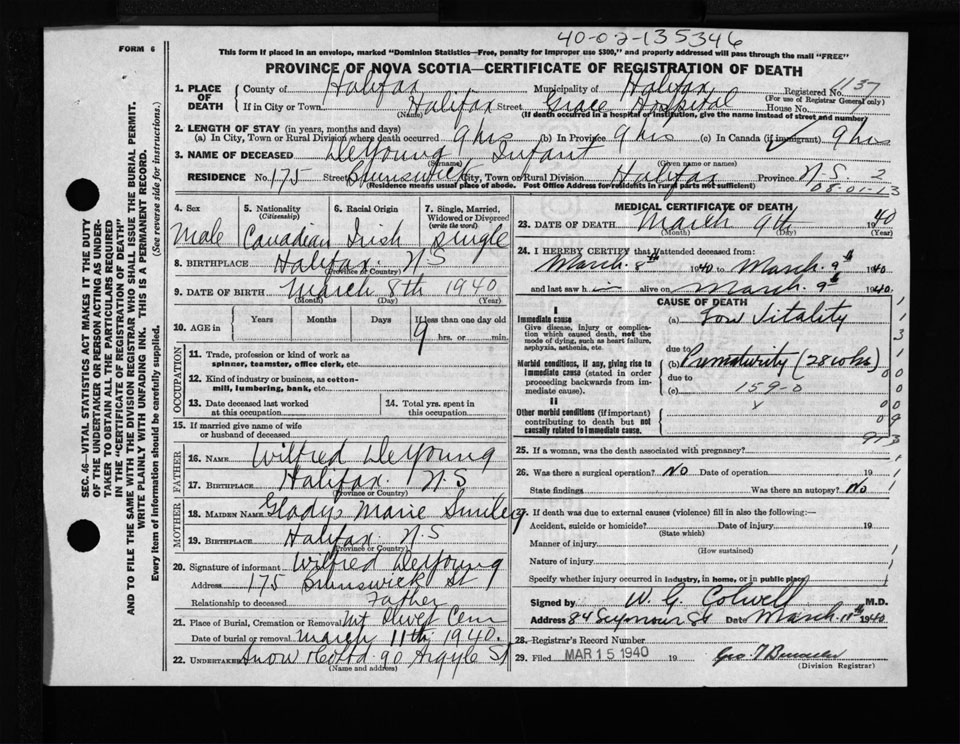 40-02-135346
FORM 6
This form if placed in an envelope, marked "Dominion Statistics—Free, penalty for improper use $300," and properly addressed will pass through the mail "FREE"
PROVINCE OF NOVA SCOTIA—CERTIFICATE OF REGISTRATION OF DEATH
SEC. 46—VITAL STATISTICS ACT MAKES IT THE DUTY
OF THE UNDERTAKER OR PERSON ACTING AS UNDER-
TAKER TO OBTAIN ALL THE PARTICULARS REQUIRED
IN THE "CERTIFICATE OF REGISTRATION OF DEATH"
AND TO FILE THE SAME WITH THE DIVISION REGISTRAR WHO SHALL ISSUE THE BURIAL PERMIT.
WRITE PLAINLY WITH UNFADING INK. THIS IS A PERMANENT RECORD.
Every item of information should be carefully supplied.
(See reverse side for instructions.)
1. PLACE OF DEATH
County of Halifax Municipality of Halifax Registered No. 1137
(For use of Registrar General only)
If in City or Town Halifax Street Grace Hospital House No.
(Name) (If death occurred in a hospital or institution, give the name instead of street and number)
2. LENGTH OF STAY (in years, months and days)
(a) In City, Town or Rural Division where death occurred 9 hrs (b) In Province 9 hrs (c) In Canada (if immigrant) 9 hrs
3. NAME OF DECEASED DeYoung Infant
(Surname) (Given name or names)
RESIDENCE No. 175 Street Brunswick City, Town or Rural Division Halifax Province N S 2
(Residence means usual place of abode. Post Office Address for residents in rural parts not sufficient)
08-01-13
4. Sex
Male
5. Nationality (Citizenship)
Canadian
6. Racial Origin
Irish
7. Single, Married, Widowed or Divorced (write the word)
Single
8. BIRTHPLACE Halifax N S
(Province or Country)
9. DATE OF BIRTH March 8th 1940
(Month) (Day) (Year)
10. AGE in Years Months Days If less than one day old
9 hrs. or min.
OCCUPATION
11. Trade, profession or kind of work as spinner, teamster, office clerk, etc.
12. Kind of industry or business, as cotton-mill, lumbering, bank, etc.
13. Date deceased last worked at this occupation
14. Total yrs. spent in this occupation
15. If married give name of wife or husband of deceased
FATHER
16. NAME Wilfred DeYoung
17. BIRTHPLACE Halifax N. S
(Province or Country)
MOTHER
18. MAIDEN NAME Gladys Marie Smiley
19. BIRTHPLACE Halifax N. S
(Province or Country)
20. Signature of informant Wilfred DeYoung
Address 175 Brunswick St
Relationship to deceased Father
21. Place of Burial, Cremation or Removal Mt Olivet Cem
Date of burial or removal March 11th 1940.
22. UNDERTAKER Snow & Co Ltd. 90 Argyle St
(Name and address)
MEDICAL CERTIFICATE OF DEATH
23. DATE OF DEATH March 9th 1940
(Month) (Day) (Year)
24. I HEREBY CERTIFY that I attended deceased from:
March 8th 1940 to March 9th 1940
and last saw him alive on March 9th 1940.
CAUSE OF DEATH
I
Immediate cause
Give disease, injury or complication which caused death, not the mode of dying, such as heart failure, asphyxia, asthenia, etc.
(a) Low Vitality
due to
Morbid conditions, if any, giving rise to immediate cause (stated in order proceeding backwards from immediate cause).
(b) Prematurity (28 wks)
due to
(c) 159-0
II
Other morbid conditions (if important) contributing to death but not causally related to immediate cause.
25. If a woman, was the death associated with pregnancy?
26. Was there a surgical operation? No Date of operation 19
State findings Was there an autopsy? No
27. If death was due to external causes (violence) fill in also the following:—
Accident, suicide or homicide? Date of injury 19
(State which)
Manner of injury
(How sustained)
Nature of injury
Specify whether injury occurred in industry, in home, or in public place
Signed by W. G. Colwell M.D.
Address 84 Seymour St Date March 11th 1940
28. Registrar's Record Number
29. Filed MAR 15 1940 19
(Division Registrar)